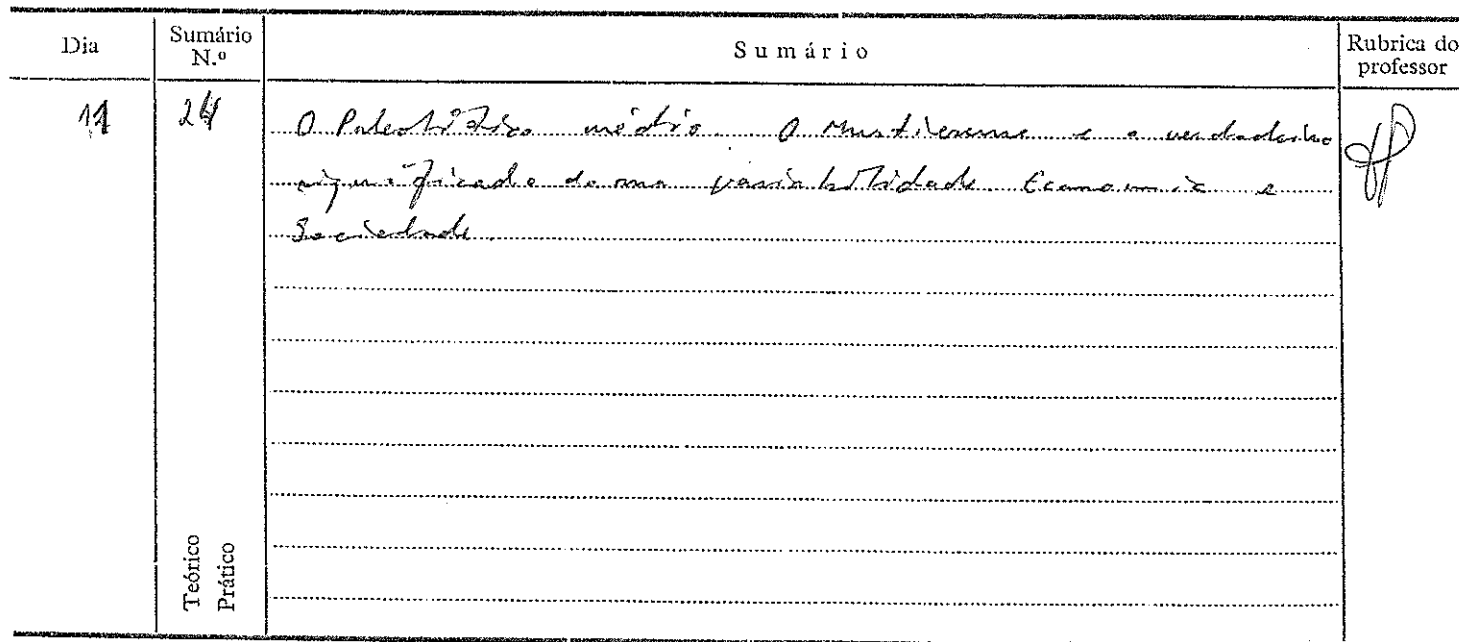 Dia
Sumário N.º
Sumário
Rubrica do professor
11
24
O Paleolítico médio. O Mustierense e o verdadeiro
significado da sua variabilidade. Economia e
Sociedade.
Teórico
Prático